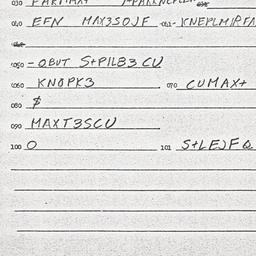 040 EFN MAX3SOJF 041- KNEPLM/RFA
050 - OBUT S+PILB3 CU
060 KNOPK3 070 CUMAX+
080 $
090 MAXT3SCU
100 O 101 S+LEJFQ